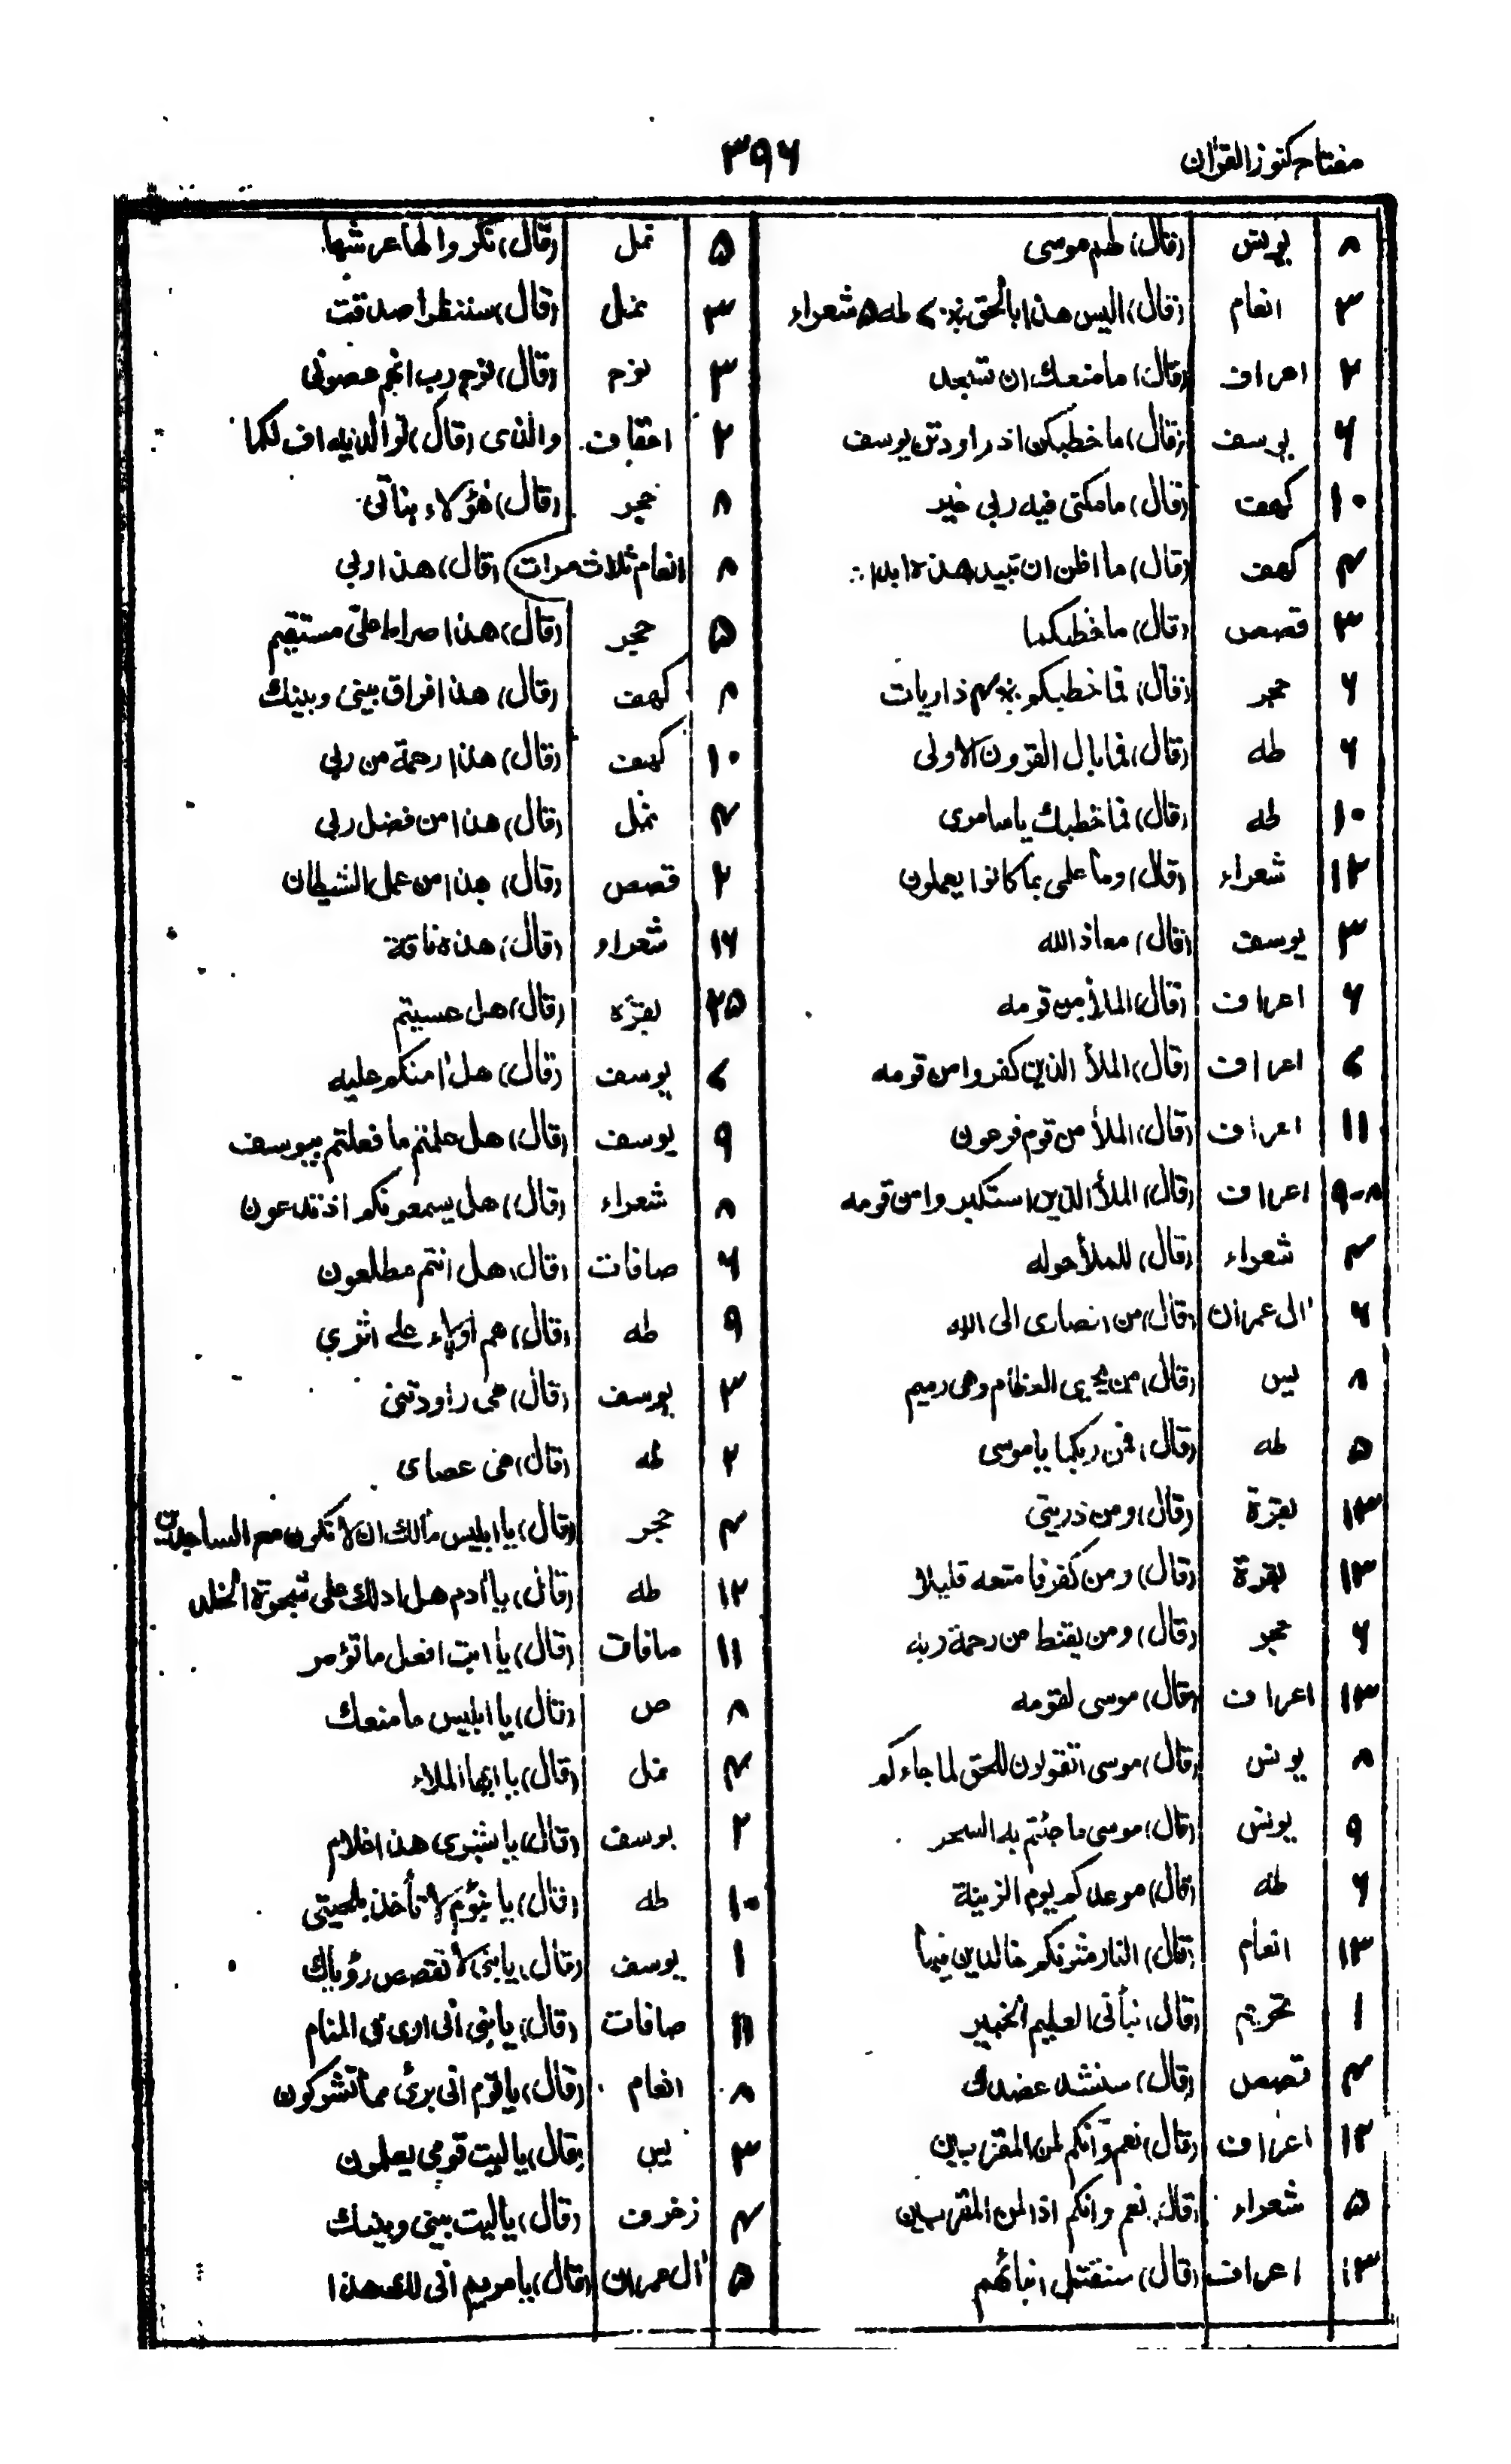 مفتاح كنوز القرأن
٣٩٦
٨ يونس (قال) لهم موسى
٣ انعام (قال) اليس هذا بالحق ؞ ٧ طه ۵ شعراء
٢ اعراف (قال) ما منعك ان تسجد
٦ يوسف (قال) ما خطبكن اذ راودتن يوسف
١٠ كهف (قال) ما مكنى فيه ربى خير
۴ كهف (قال) ما اظن ان تبيد هذه ابدا
٣ قصص (قال) ما خطبكما
٦ حجر (قال) فما خطبكم ؞ ۴ ذاريات
٦ طه (قال) فما بال القرون الاولى
١٠ طه (قال) فما خطبك يا سامرى
١٢ شعراء (قال) وما علمى بما كانوا يعملون
٣ يوسف (قال) معاذ الله
٦ اعراف (قال) الملأ من قومه
٧ اعراف (قال) الملأ الذين كفروا من قومه
١١ اعراف (قال) الملأ من قوم فرعون
٩-٨ اعراف (قال) الملأ الذين استكبروا من قومه
۴ شعراء (قال) للملأ حوله
٦ اٰل عمران (قال) من انصارى الى الله
٨ يس (قال) من يحيى العظام وهى رميم
۵ طه (قال) فمن ربكما يا موسى
١٣ بقرة (قال) ومن ذريتى
١٣ بقرة (قال) ومن كفر فامتعه قليلا
٦ حجر (قال) ومن يقنط من رحمة ربه
١٣ اعراف (قال) موسى لقومه
٨ يونس (قال) موسى اتقولون للحق لما جاءكم
٩ يونس (قال) موسى ما جئتم به السحر
٦ طه (قال) موعدكم يوم الزينة
١٣ انعام (قال) النار مثوىكم خالدين فيها
١ تحريم (قال) نبأنى العليم الخبير
۴ قصص (قال) سنشد عضدك
١٢ اعراف (قال) نعم وانكم لمن المقربين
۵ شعراء (قال) نعم وانكم اذا لمن المقربين
١٣ اعراف (قال) سنقتل ابنائهم
۵ نمل (قال) نكروا لها عرشها
٣ نمل (قال) سننظر أصدقت
٣ نوح (قال) نوح رب انهم عصونى
٢ احقاف والذى (قال) لوالديه اف لكما
٨ حجر (قال) هٰؤلاء بناتى
٨ انعام ثلاث مرات (قال) هذا ربى
۵ حجر (قال) هذا صراط على مستقيم
٨ كهف (قال) هذا فراق بينى وبينك
١٠ كهف (قال) هذا رحمة من ربى
۴ نمل (قال) هذا من فضل ربى
٢ قصص (قال) هذا من عمل الشيطان
١٦ شعراء (قال) هذه ناقة
٢۵ بقره (قال) هل عسيتم
٧ يوسف (قال) هل اٰمنكم عليه
٩ يوسف (قال) هل علمتم ما فعلتم بيوسف
٨ شعراء (قال) هل يسمعونكم اذ تدعون
٦ صافات (قال) هل انتم مطلعون
٩ طه (قال) هم اولاء على اثرى
٣ يوسف (قال) هى راودتنى
٢ طه (قال) هى عصاى
۴ حجر (قال) يا ابليس مالك ان لا تكون مع الساجدين
١٢ طه (قال) يا أدم هل ادلك على شجرة الخلد
١١ صافات (قال) يا ابت افعل ما تؤمر
٨ ص (قال) يا ابليس ما منعك
۴ نمل (قال) يا ايها الملاء
٢ يوسف (قال) يا بشرى هذا غلام
١٠ طه (قال) يا بنؤم لا تأخذ بلحيتى
١ يوسف (قال) يا بنى لا تقصص رؤياك
١١ صافات (قال) يا بنى انى ارى فى المنام
٨ انعام (قال) يا قوم انى برئ مما تشركون
٣ يس (قال) يا ليت قومى يعلمون
۴ زخرف (قال) يا ليت بينى وبينك
۵ اٰل عمران (قال) يا مريم انى لك هذا